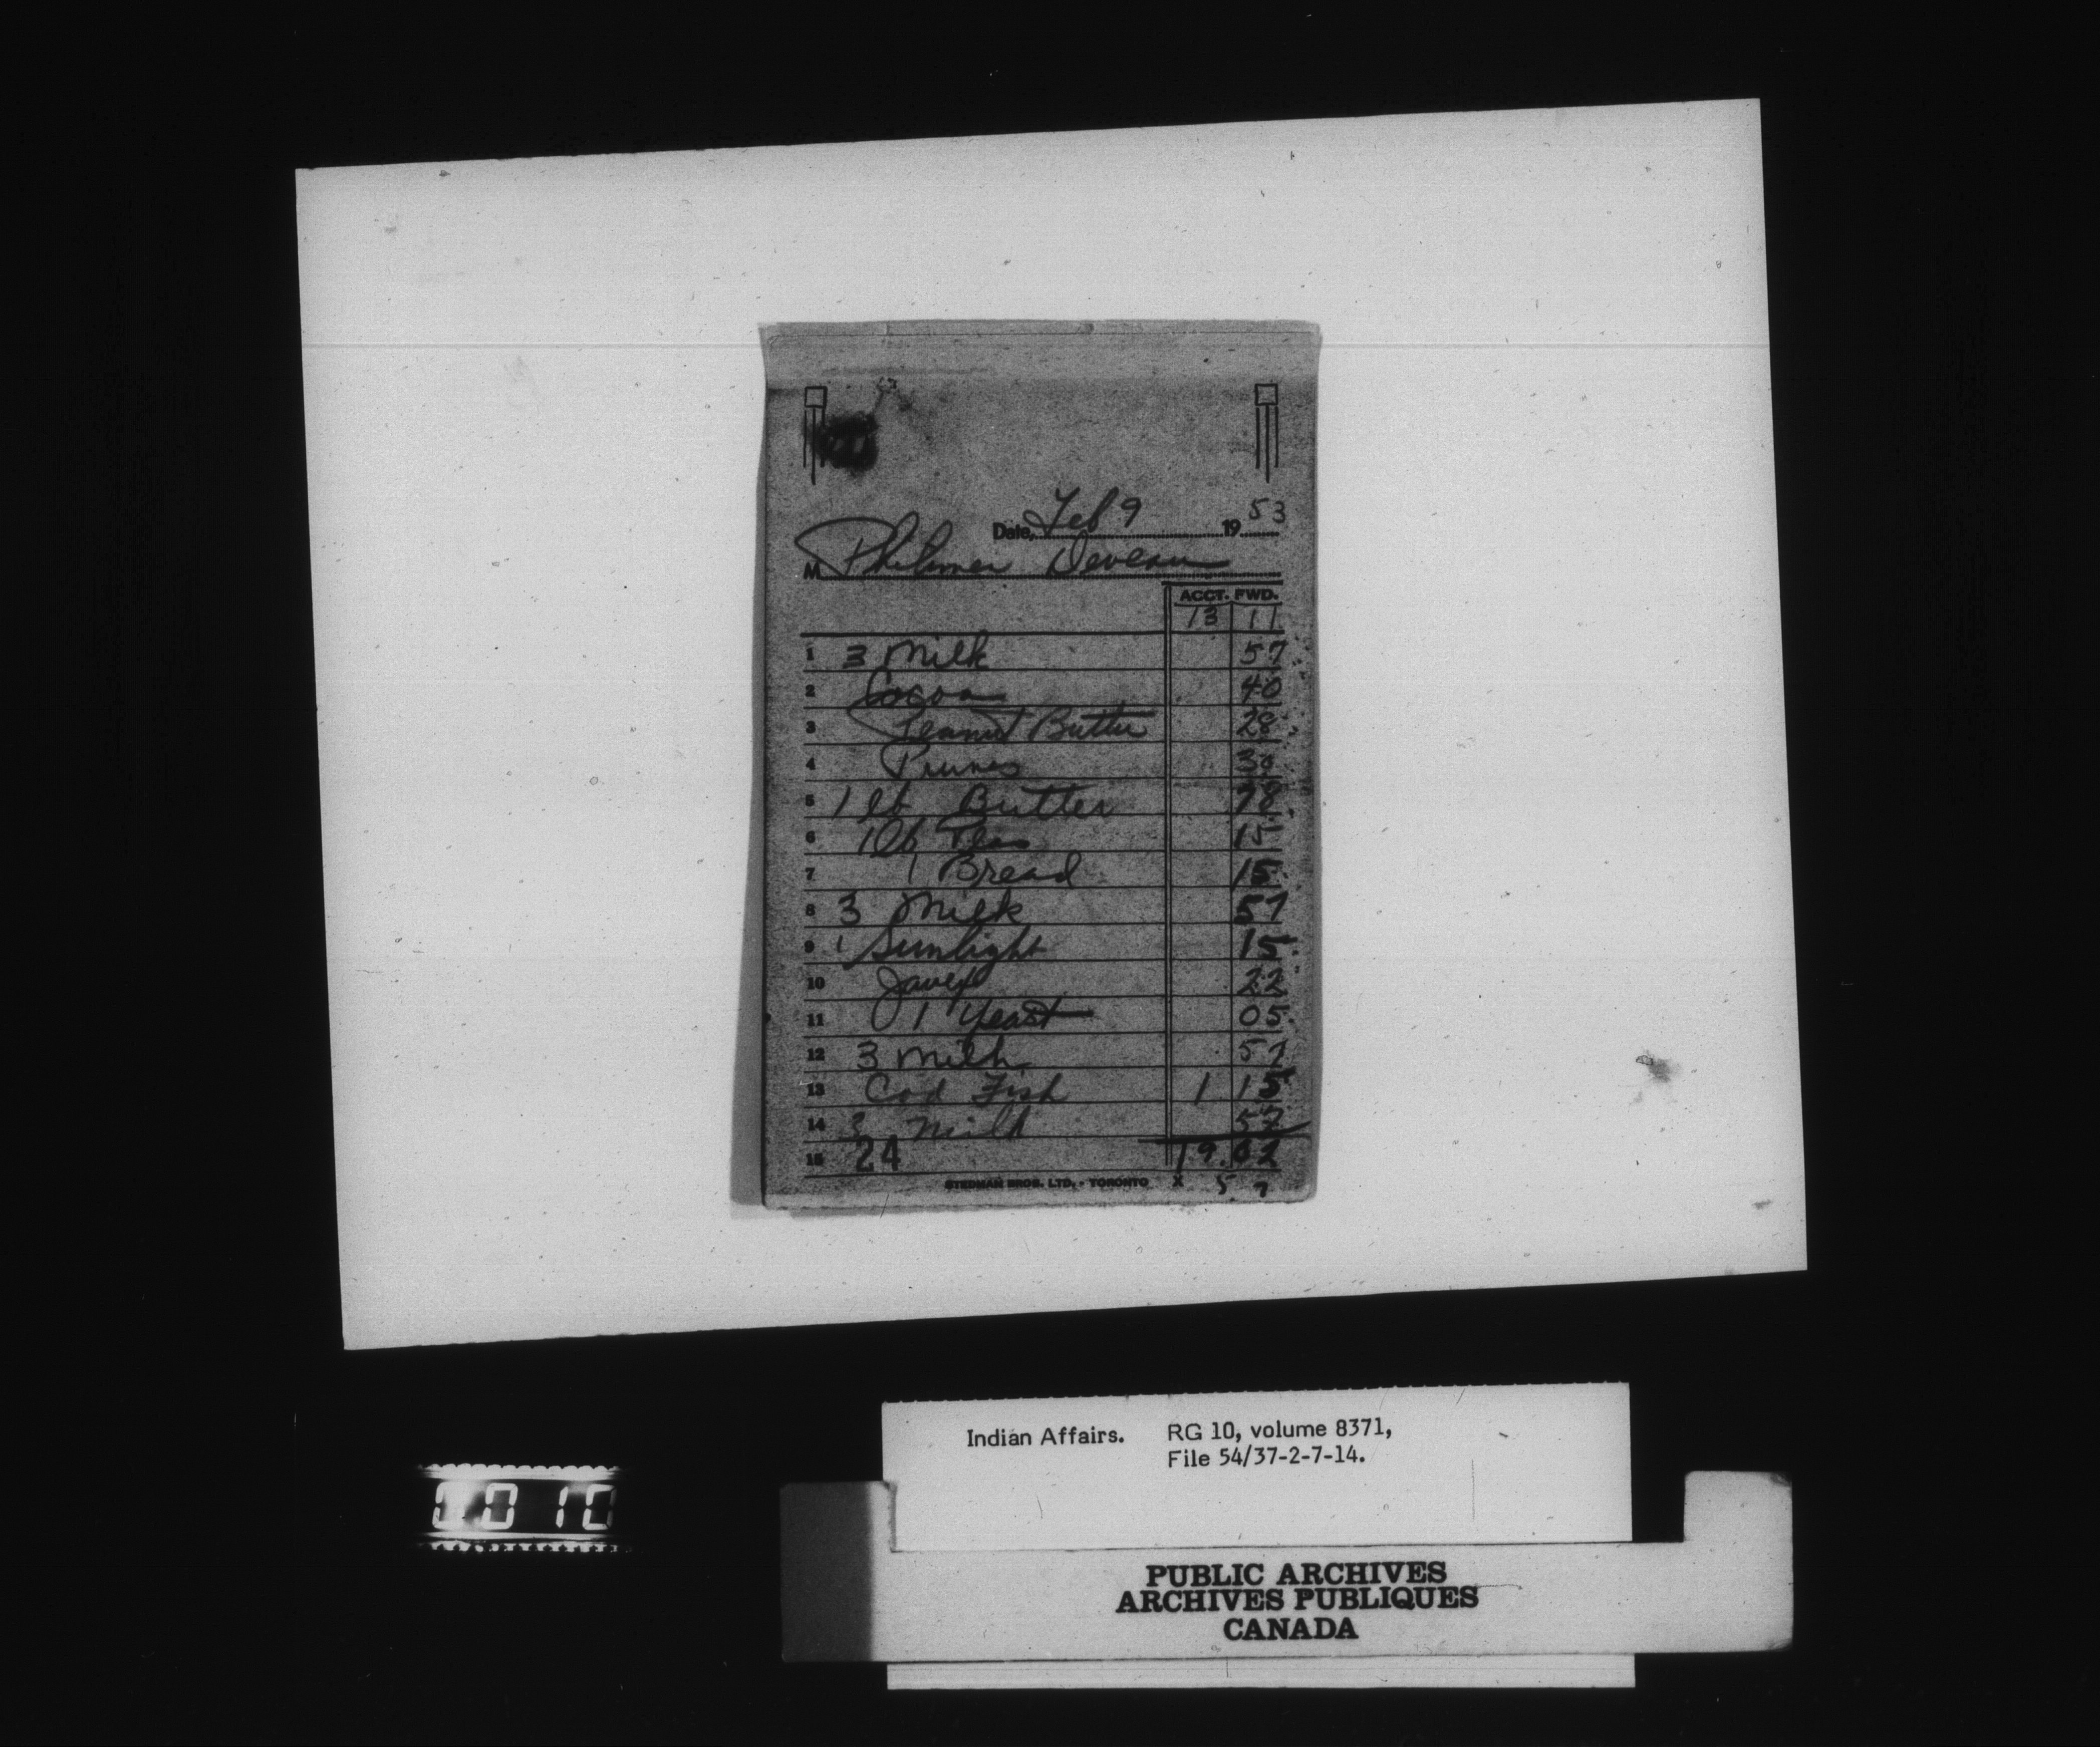 Date, Feb 9 19 53
M Philimen Deveau
ACCT. FWD.
13 11
1 3 Milk 57
2 Cocoa 40
3 Peanut Butter 28
4 Prunes 30
5 1 lb Butter 78
6 1 lb Peas 15
7 1 Bread 15
8 3 Milk 57
9 1 Sunlight 15
10 Javex 22
11 1 Yeast 05
12 3 Milk 57
13 Cod Fish 1 15
14 3 Milk 57
15 24 19.02
STEDMAN BROS. LTD. - TORONTO X 5 7
Indian Affairs. RG 10, volume 8371,
File 54/37-2-7-14.
0010
PUBLIC ARCHIVES
ARCHIVES PUBLIQUES
CANADA